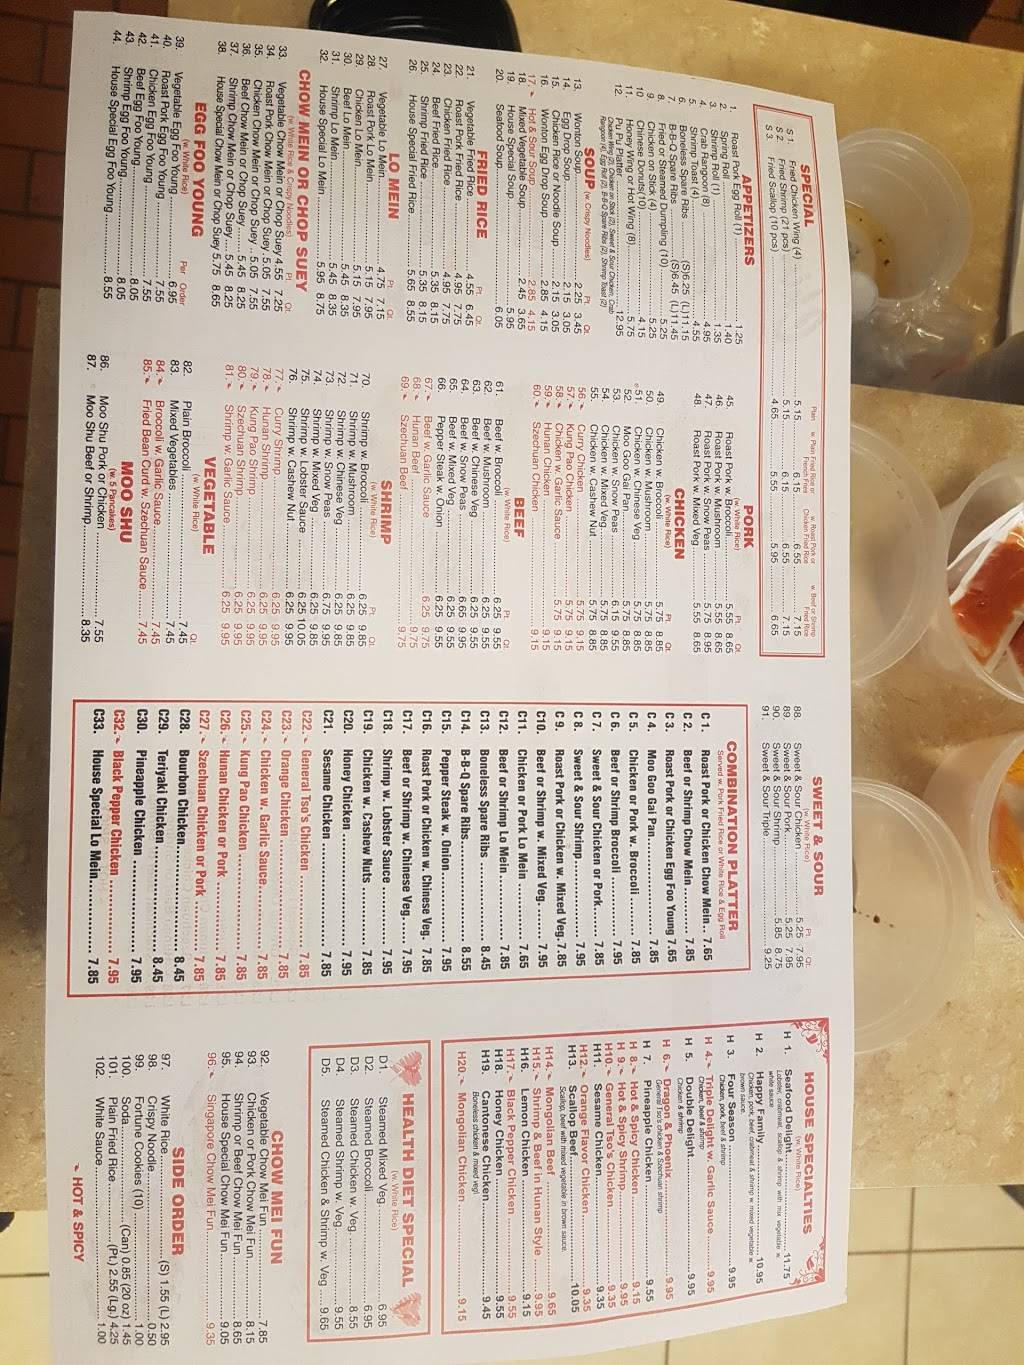 SPECIAL
Plain
w. Plain Fried Rice or French Fries
w. Roast Pork or Chicken Fried Rice
w. Beef or Shrimp Fried Rice
S 1. Fried Chicken Wing (4) 5.15 6.15 6.55 7.15
S 2. Fried Shrimp (21 pcs) 5.15 6.15 6.55 7.15
S 3. Fried Scallop (10 pcs) 4.65 5.55 5.95 6.65
APPETIZERS
1. Roast Pork Egg Roll (1) 1.25
2. Spring Roll 1.40
3. Shrimp Roll (1) 1.35
4. Crab Rangoon (8) 4.95
5. Shrimp Toast (4) 4.55
6. Boneless Spare Ribs (S)6.25 (L)11.15
7. B-B-Q Spare Ribs (S)6.45 (L)11.45
8. Fried or Steamed Dumpling (10) 5.25
9. Chicken on Stick (4) 5.25
10. Chinese Donuts(10) 4.15
11. Honey Wing or Hot Wing (8) 5.75
12. Pu Pu Platter 12.95
Chicken Wing (2), Chicken on Stick (2), Sweet & Sour Chicken, Crab
Rangoon (4), Egg Roll (2), B-B-Q Spare Ribs (2), Shrimp Toast (2)
SOUP (w. Crispy Noodles) Pt. Qt.
13. Wonton Soup 2.25 3.45
14. Egg Drop Soup 2.15 3.05
15. Chicken Rice or Noodle Soup 2.15 3.05
16. Wonton Egg Drop Soup 2.85 4.15
17. Hot & Sour Soup 2.85 4.15
18. Mixed Vegetable Soup 2.45 3.65
19. House Special Soup 5.95
20. Seafood Soup 6.05
FRIED RICE Pt. Qt.
21. Vegetable Fried Rice 4.55 6.45
22. Roast Pork Fried Rice 4.95 7.75
23. Chicken Fried Rice 4.95 7.75
24. Beef Fried Rice 5.35 8.15
25. Shrimp Fried Rice 5.35 8.15
26. House Special Fried Rice 5.65 8.55
LO MEIN Pt. Qt.
27. Vegetable Lo Mein 4.75 7.15
28. Roast Pork Lo Mein 5.15 7.95
29. Chicken Lo Mein 5.15 7.95
30. Beef Lo Mein 5.45 8.35
31. Shrimp Lo Mein 5.45 8.35
32. House Special Lo Mein 5.95 8.75
CHOW MEIN OR CHOP SUEY
(w. White Rice & Crispy Noodles) Pt. Qt.
33. Vegetable Chow Mein or Chop Suey 4.55 7.25
34. Roast Pork Chow Mein or Chop Suey 5.05 7.55
35. Chicken Chow Mein or Chop Suey 5.05 7.55
36. Beef Chow Mein or Chop Suey 5.45 8.25
37. Shrimp Chow Mein or Chop Suey 5.45 8.25
38. House Special Chow Mein or Chop Suey 5.75 8.65
EGG FOO YOUNG
(w. White Rice) Per Order
39. Vegetable Egg Foo Young 6.95
40. Roast Pork Egg Foo Young 7.55
41. Chicken Egg Foo Young 7.55
42. Beef Egg Foo Young 8.05
43. Shrimp Egg Foo Young 8.05
44. House Special Egg Foo Young 8.55
PORK
(w. White Rice) Pt. Qt.
45. Roast Pork w. Broccoli 5.55 8.65
46. Roast Pork w. Mushroom 5.55 8.65
47. Roast Pork w. Snow Peas 5.75 8.95
48. Roast Pork w. Mixed Veg 5.55 8.65
CHICKEN
(w. White Rice) Pt. Qt.
49. Chicken w. Broccoli 5.75 8.85
50. Chicken w. Mushroom 5.75 8.85
51. Chicken w. Chinese Veg 5.75 8.85
52. Moo Goo Gai Pan 5.75 8.85
53. Chicken w. Snow Peas 6.15 9.55
54. Chicken w. Mixed Veg. 5.75 8.85
55. Chicken w. Cashew Nut 5.75 8.85
56. Curry Chicken 5.75 9.15
57. Kung Pao Chicken 5.75 9.15
58. Chicken w. Garlic Sauce 5.75 9.15
59. Hunan Chicken 9.15
60. Szechuan Chicken 9.15
BEEF
(w. White Rice) Pt. Qt.
61. Beef w. Broccoli 6.25 9.55
62. Beef w. Mushroom 6.25 9.55
63. Beef w. Chinese Veg 6.25 9.55
64. Beef w. Snow Peas 6.65 9.95
65. Beef w. Mixed Veg 6.25 9.55
66. Pepper Steak w. Onion 6.25 9.55
67. Beef w. Garlic Sauce 6.25 9.75
68. Hunan Beef 9.75
69. Szechuan Beef 9.75
SHRIMP
(w. White Rice) Pt. Qt.
70. Shrimp w. Broccoli 6.25 9.85
71. Shrimp w. Mushroom 6.25 9.85
72. Shrimp w. Chinese Veg 6.25 9.85
73. Shrimp w. Snow Peas 6.75 9.95
74. Shrimp w. Mixed Veg 6.25 9.85
75. Shrimp w. Lobster Sauce 6.25 10.05
76. Shrimp w. Cashew Nut 6.25 9.95
77. Curry Shrimp 6.25 9.95
78. Hunan Shrimp 6.25 9.95
79. Kung Pao Shrimp 6.25 9.95
80. Szechuan Shrimp 6.25 9.95
81. Shrimp w. Garlic Sauce 6.25 9.95
VEGETABLE
(w. White Rice) Qt.
82. Plain Broccoli 7.45
83. Mixed Vegetables 7.45
84. Broccoli w. Garlic Sauce 7.45
85. Fried Bean Curd w. Szechuan Sauce 7.45
MOO SHU
(w. 5 Pancakes)
86. Moo Shu Pork or Chicken 7.55
87. Moo Shu Beef or Shrimp 8.35
SWEET & SOUR
(w. White Rice) Pt. Qt.
88. Sweet & Sour Chicken 5.25 7.95
89. Sweet & Sour Pork 5.25 7.95
90. Sweet & Sour Shrimp 5.85 8.75
91. Sweet & Sour Triple 9.25
COMBINATION PLATTER
Served w. Pork Fried Rice or White Rice & Egg Roll
C 1. Roast Pork or Chicken Chow Mein 7.65
C 2. Beef or Shrimp Chow Mein 7.85
C 3. Roast Pork or Chicken Egg Foo Young 7.65
C 4. Moo Goo Gai Pan 7.85
C 5. Chicken or Pork w. Broccoli 7.85
C 6. Beef or Shrimp Broccoli 7.95
C 7. Sweet & Sour Chicken or Pork 7.85
C 8. Sweet & Sour Shrimp 7.95
C 9. Roast Pork or Chicken w. Mixed Veg. 7.85
C10. Beef or Shrimp w. Mixed Veg. 7.95
C11. Chicken or Pork Lo Mein 7.65
C12. Beef or Shrimp Lo Mein 7.85
C13. Boneless Spare Ribs 8.45
C14. B-B-Q Spare Ribs 8.55
C15. Pepper Steak w. Onion 7.95
C16. Roast Pork or Chicken w. Chinese Veg. 7.85
C17. Beef or Shrimp w. Chinese Veg. 7.95
C18. Shrimp w. Lobster Sauce 7.95
C19. Chicken w. Cashew Nuts 7.85
C20. Honey Chicken 7.95
C21. Sesame Chicken 7.85
C22. General Tso's Chicken 7.85
C23. Orange Chicken 7.85
C24. Chicken w. Garlic Sauce 7.85
C25. Kung Pao Chicken 7.85
C26. Hunan Chicken or Pork 7.85
C27. Szechuan Chicken or Pork 7.85
C28. Bourbon Chicken 8.45
C29. Teriyaki Chicken 8.45
C30. Pineapple Chicken 7.95
C32. Black Pepper Chicken 7.95
C33. House Special Lo Mein 7.85
HOUSE SPECIALTIES
(w. White Rice)
H 1. Seafood Delight 11.75
Lobster, crabmeat, scallop & shrimp with mix vegetable w. white sauce
H 2. Happy Family 10.95
Chicken, pork, beef, crabmeat & shrimp w. mixed vegetable w. brown sauce.
H 3. Four Season 9.95
Chicken, pork, beef & shrimp
H 4. Triple Delight w. Garlic Sauce 9.95
Chicken, beef & shrimp
H 5. Double Delight 9.95
Chicken & shrimp
H 6. Dragon & Phoenix 9.95
General Tso's chicken & Szechuan shrimp
H 7. Pineapple Chicken 9.55
H 8. Hot & Spicy Chicken 9.15
H 9. Hot & Spicy Shrimp 9.95
H10. General Tso's Chicken 9.35
H11. Sesame Chicken 9.35
H12. Orange Flavor Chicken 9.35
H13. Scallop Beef 10.05
Scallop, beef with mixed vegetable in brown sauce.
H14. Mongolian Beef 9.65
H15. Shrimp & Beef in Hunan Style 9.95
H16. Lemon Chicken 9.15
H17. Black Pepper Chicken 9.55
H18. Honey Chicken 9.55
H19. Cantonese Chicken 9.45
Boneless chicken & mixed vegi
H20. Mongolian Chicken 9.15
HEALTH DIET SPECIAL
(w. White Rice)
D1. Steamed Mixed Veg. 6.95
D2. Steamed Broccoli 6.95
D3. Steamed Chicken w. Veg. 8.55
D4. Steamed Shrimp w. Veg. 9.55
D5. Steamed Chicken & Shrimp w. Veg 9.65
CHOW MEI FUN
92. Vegetable Chow Mei Fun 7.85
93. Chicken or Pork Chow Mei Fun 8.15
94. Shrimp or Beef Chow Mei Fun 8.65
95. House Special Chow Mei Fun 9.05
96. Singapore Chow Mei Fun 9.35
SIDE ORDER
97. White Rice (S) 1.55 (L) 2.95
98. Crispy Noodle 0.50
99. Fortune Cookies (10) 1.00
100. Soda (Can) 0.85 (20 oz) 1.45
101. Plain Fried Rice (Pt.) 2.55 (Lg.) 4.25
102. White Sauce 1.00
HOT & SPICY